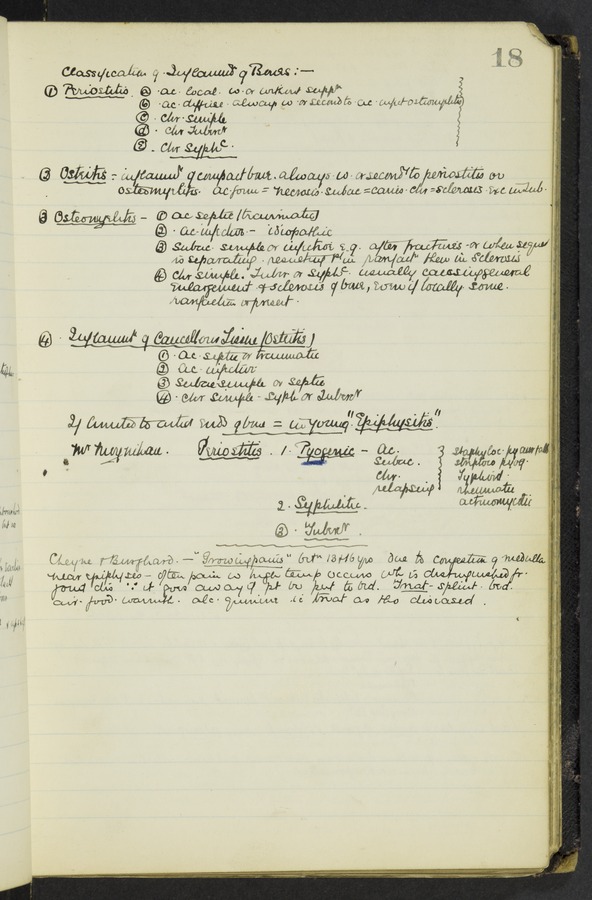 18
Classification of Inflammn of Bones :-
① Periostitis ⓐ ac. local. w. or without suppn
ⓑ ac. diffuse. always w. or second to ac. infect osteomyelitis
ⓒ chr. simple
ⓓ chr. Tubercr
ⓔ chr Syphc.
② Ostitis = inflammn of compact bone. always w. or secondy to periostitis or
osteomyelitis. ac. form = necrosis. subac = caries. chr = sclerosis.
③ Osteomyelitis - ① ac septic (traumatic)
② ac. infective - idiopathic
③ Subac. simple or infective e.g. after fractures or when seques
is separating. resulting 1st in rarefactn then in Sclerosis
④ chr simple. Tubr or Syphc. usually causing general
enlargement & sclerosis of bone, even if locally some
rarefaction is present.
④ Inflammn of Cancellous Tissue (Ostitis)
① ac. septic or traumatic
② ac. infective
③ Subac simple or septic
④ chr simple - Syph or Tubercr
If limited to articr ends of bone = in young "Epiphysitis".
Mr Moynihan. Periostitis. 1. Pyogenic - Ac. staphyloc. pyog
Subac. streptoc pyog.
Chr. Typhoid
relapsing rheumatic
actinomycotic
2. Syphilitic.
③ Tubercr.
Cheyne & Burghard. - "Growing pains" betn 13 & 16 yrs due to congestion of medulla
near epiphyses - often pain w high temp occurs wh is distinguished fr.
∵ it goes away if pt be put to bed. Treat - splint. bed.
air. food. warmth. alc. quinine ie treat as tho diseased.